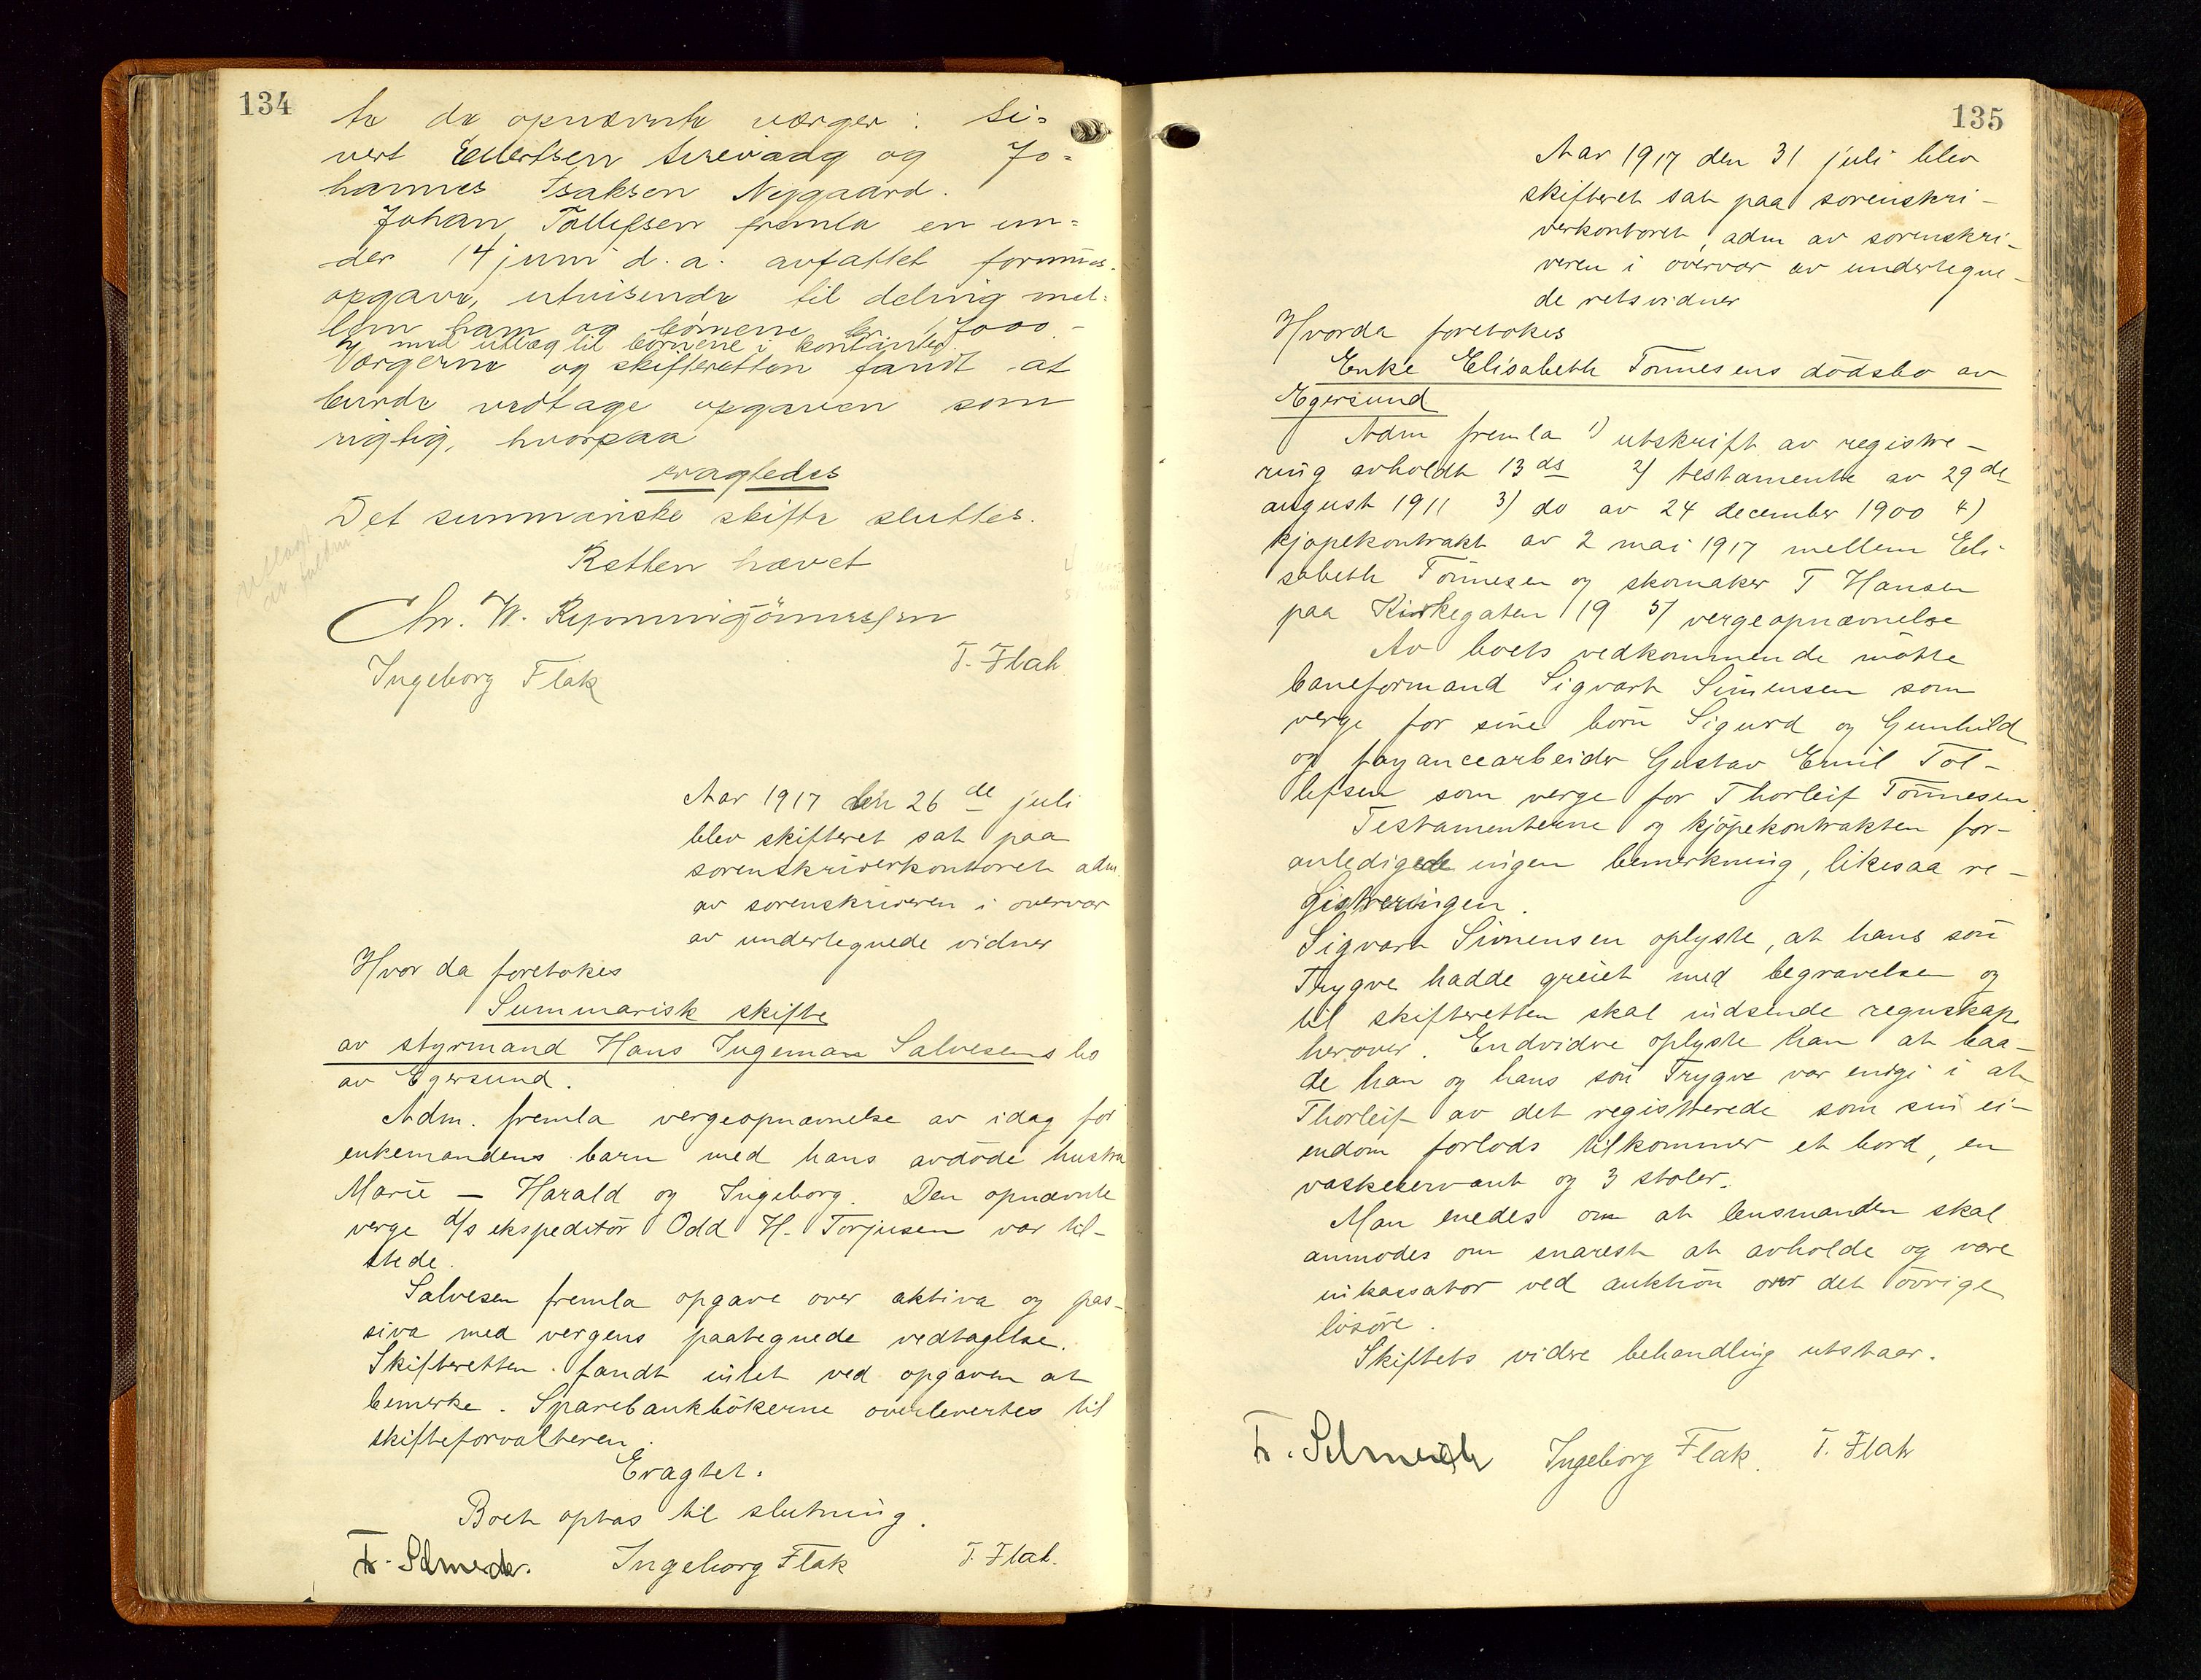 134
te de opnævnte værger: Si=
vert Eilertsen Sirevaag og Jo=
hannes Isaksen Nygaard.
Johan Tollefsen fremla en un=
der 14 juni d. a. avfattet formues-
opgave, utvisende til deling mel-
lem ham og börnene kr. 7000 -
med utlæg til börnene i kontanter.
Værgerne og skifteretten fandt at
burde vedtage opgaven som
rigtig, hvorpaa
eragtedes
Det summariske skifte sluttes.
Retten hævet
Chr. W.
Ingeborg Flak T. Flak
Aar 1917 den 26de juli
blev skifteret sat paa
sorenskriverkontoret adm.
av sorenskriveren i overvær
av undertegnede vidner
Hvor da foretokes
Summarisk skifte
av styrmand Hans Ingeman Salvesens bo
av Egersund.
Adm. fremla vergeopnævnelse av idag for
enkemandens barn med hans avdöde hustru
Marie — Harald og Ingeborg. Den opnævnte
verge d/s ekspeditör Odd H. Torjusen var til-
stede.
Salvesen fremla opgave over aktiva og pas-
siva med vergens paategnede vedtagelse.
Skifteretten fandt intet ved opgaven at
bemerke. Sparebankbökerne overlevertes til
skifteforvalteren.
Eragtet.
Boet optas til slutning.
Ingeborg Flak T. Flak
135
Aar 1917 den 31 juli blev
skifteret sat paa sorenskri-
verkontoret, adm av sorenskri-
veren i overvær av undertegne-
de retsvidner
Hvorda foretokes
Enke Elisabeth Tönnesens dödsbo av
Egersund
Adm fremla 1) utskrift av registre-
ring avholdt 13 ds 2) testamente av 29de
august 1911 3) do av 24 december 1900 4)
kjöpekontrakt av 2 mai 1917 mellem Eli-
sabeth Tönnesen og skomaker T Hansen
paa Kirkegaten 19 5) vergeopnævnelse
Av boets vedkommende mötte
baneformand Sigvart Simensen som
verge for sine börn Sigurd og Gunhild
og fayancearbeider Gustav Emil Tol-
lefsen som verge for Thorleif Tönnesen.
Testamenterne og kjöpekontrakten for-
anledigede ingen bemerkning, likesaa re-
gistreringen.
Sigvart Simensen oplyste, at hans sön
Trygve hadde greiet med begravelsen og
til skifteretten skal indsende regnskap
herover. Endvidre oplyste han at baa-
de han og hans sön Trygve var enige i at
Thorleif av det registrerede som sin ei-
endom forlods tilkommer et bord, en
vaskeservant og 3 stoler.
Man enedes om at lensmanden skal
anmodes om snarest at avholde og være
inkassator ved auktion over det övrige
lösöre.
Skiftets videre behandling utstaar.
Ingeborg Flak. T. Flak